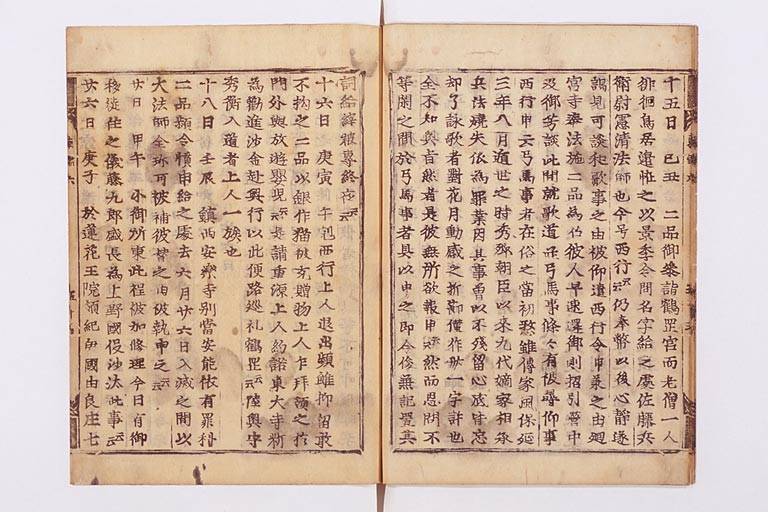 十五日　己丑　二品御参詣鶴罡宮而老僧一人
徘徊鳥居邊恠之以景季令問名字給之處佐藤兵
衛尉憲清法師也今号西行云々仍奉幣以後心静遂
謁見可談和歌事之由被仰遣西行令申承之由廻
宮寺奉法施二品為召彼人早速還御則招引營中
及御芳談此間就歌道并弓馬事條々有被尋仰事
西行申云弓馬事者在俗之當初憖雖傳家風保延
三年八月遁世之時秀郷朝臣以来九代嫡家相承
兵法焼失依為罪業因其事曽以不残留心底皆忘
却了詠歌者對花月動感之折節僅作卅一字許也
全不知奥旨然者是彼無所欲報申云々然而恩問不
等閑之間於弓馬事者具以申之即令俊兼記置其
詞給縡被專終夜云々
十六日　庚寅　午尅西行上人退出頻雖抑留敢
不拘之二品以銀作猫被宛贈物上人乍拝領之於
門外與放遊嬰児云々是請重源上人約諾東大寺料
為勧進沙金赴奥州以此便路巡礼鶴罡云々陸奥守
秀衡入道者上人一族也
十八日　壬辰　鎮西安楽寺別當安能依有罪科
二品頻令憤申給之處去六月廿六日入滅之間以
大法師全珎可被補彼替之由被執申之云々
廿日　甲午　小御所東此程被加修理今日有御
移徙之儀藤九郎盛長為上野國役沙汰此事云々
廿六日　庚子　於蓮花王院領紀伊國由良庄七